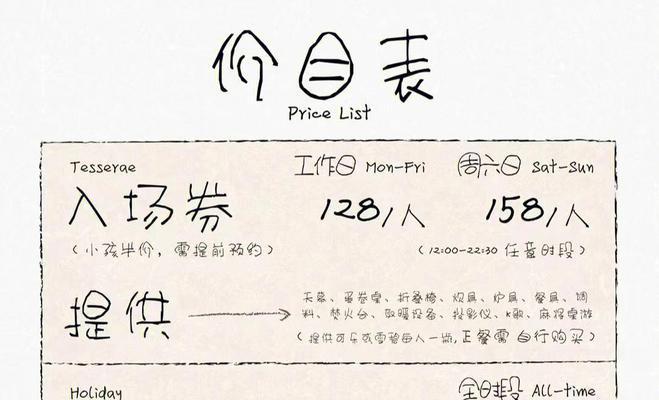 价目表
Price List
Tesserae 工作日 Mon-Fri 周六日 Sat-Sun
入场券 128/人 158/人
(小孩半价，需提前预约) (12:00-22:30 任意时段)
提供 天幕、蛋卷桌、折叠椅、炊具、炉具、餐具、调
料、焚火台、取暖设备、投影仪、K歌、麻将桌游
(提供可乐或雪碧每人一瓶,正餐需自行购买)
Holiday 全时段 All-time